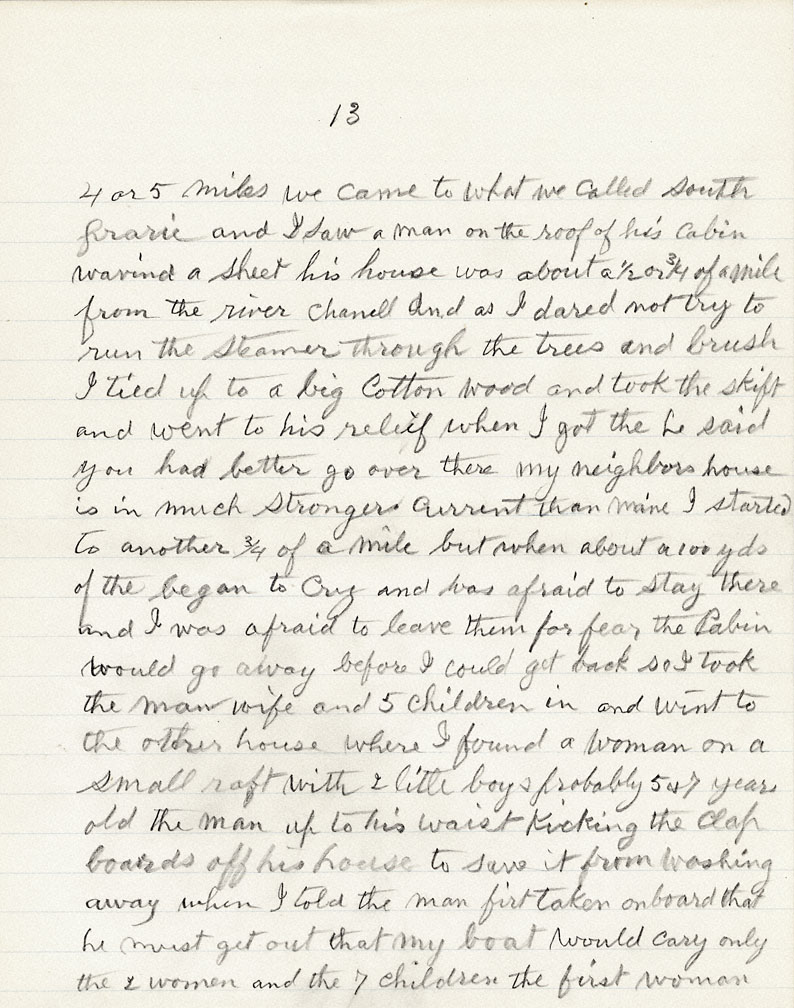 13
4 or 5 miles we came to what we called South
Prarie and I saw a man on the roof of his cabin
wavind a sheet his house was about a ½ or ¾ of a mile
from the river chanell And as I dared not try to
run the steamer through the trees and brush
I tied up to a big Cotton wood and took the skift
and went to his releif when I got the he said
you had better go over there my neighbors house
is in much stronger current than mine I started
to another ¾ of a mile but when about a 100 yds
of the began to Cry and was afraid to stay there
and I was afraid to leave them for fear the Cabin
would go away before I could get back so I took
the man wife and 5 children in and wint to
the other house where I found a woman on a
small raft with 2 litle boys probably 5 or 7 years
old the man up to his waist kicking the Clap
boards off his house to save it from washing
away when I told the man firt taken onboard that
he must get out that my boat would cary only
the 2 women and the 7 children the first woman